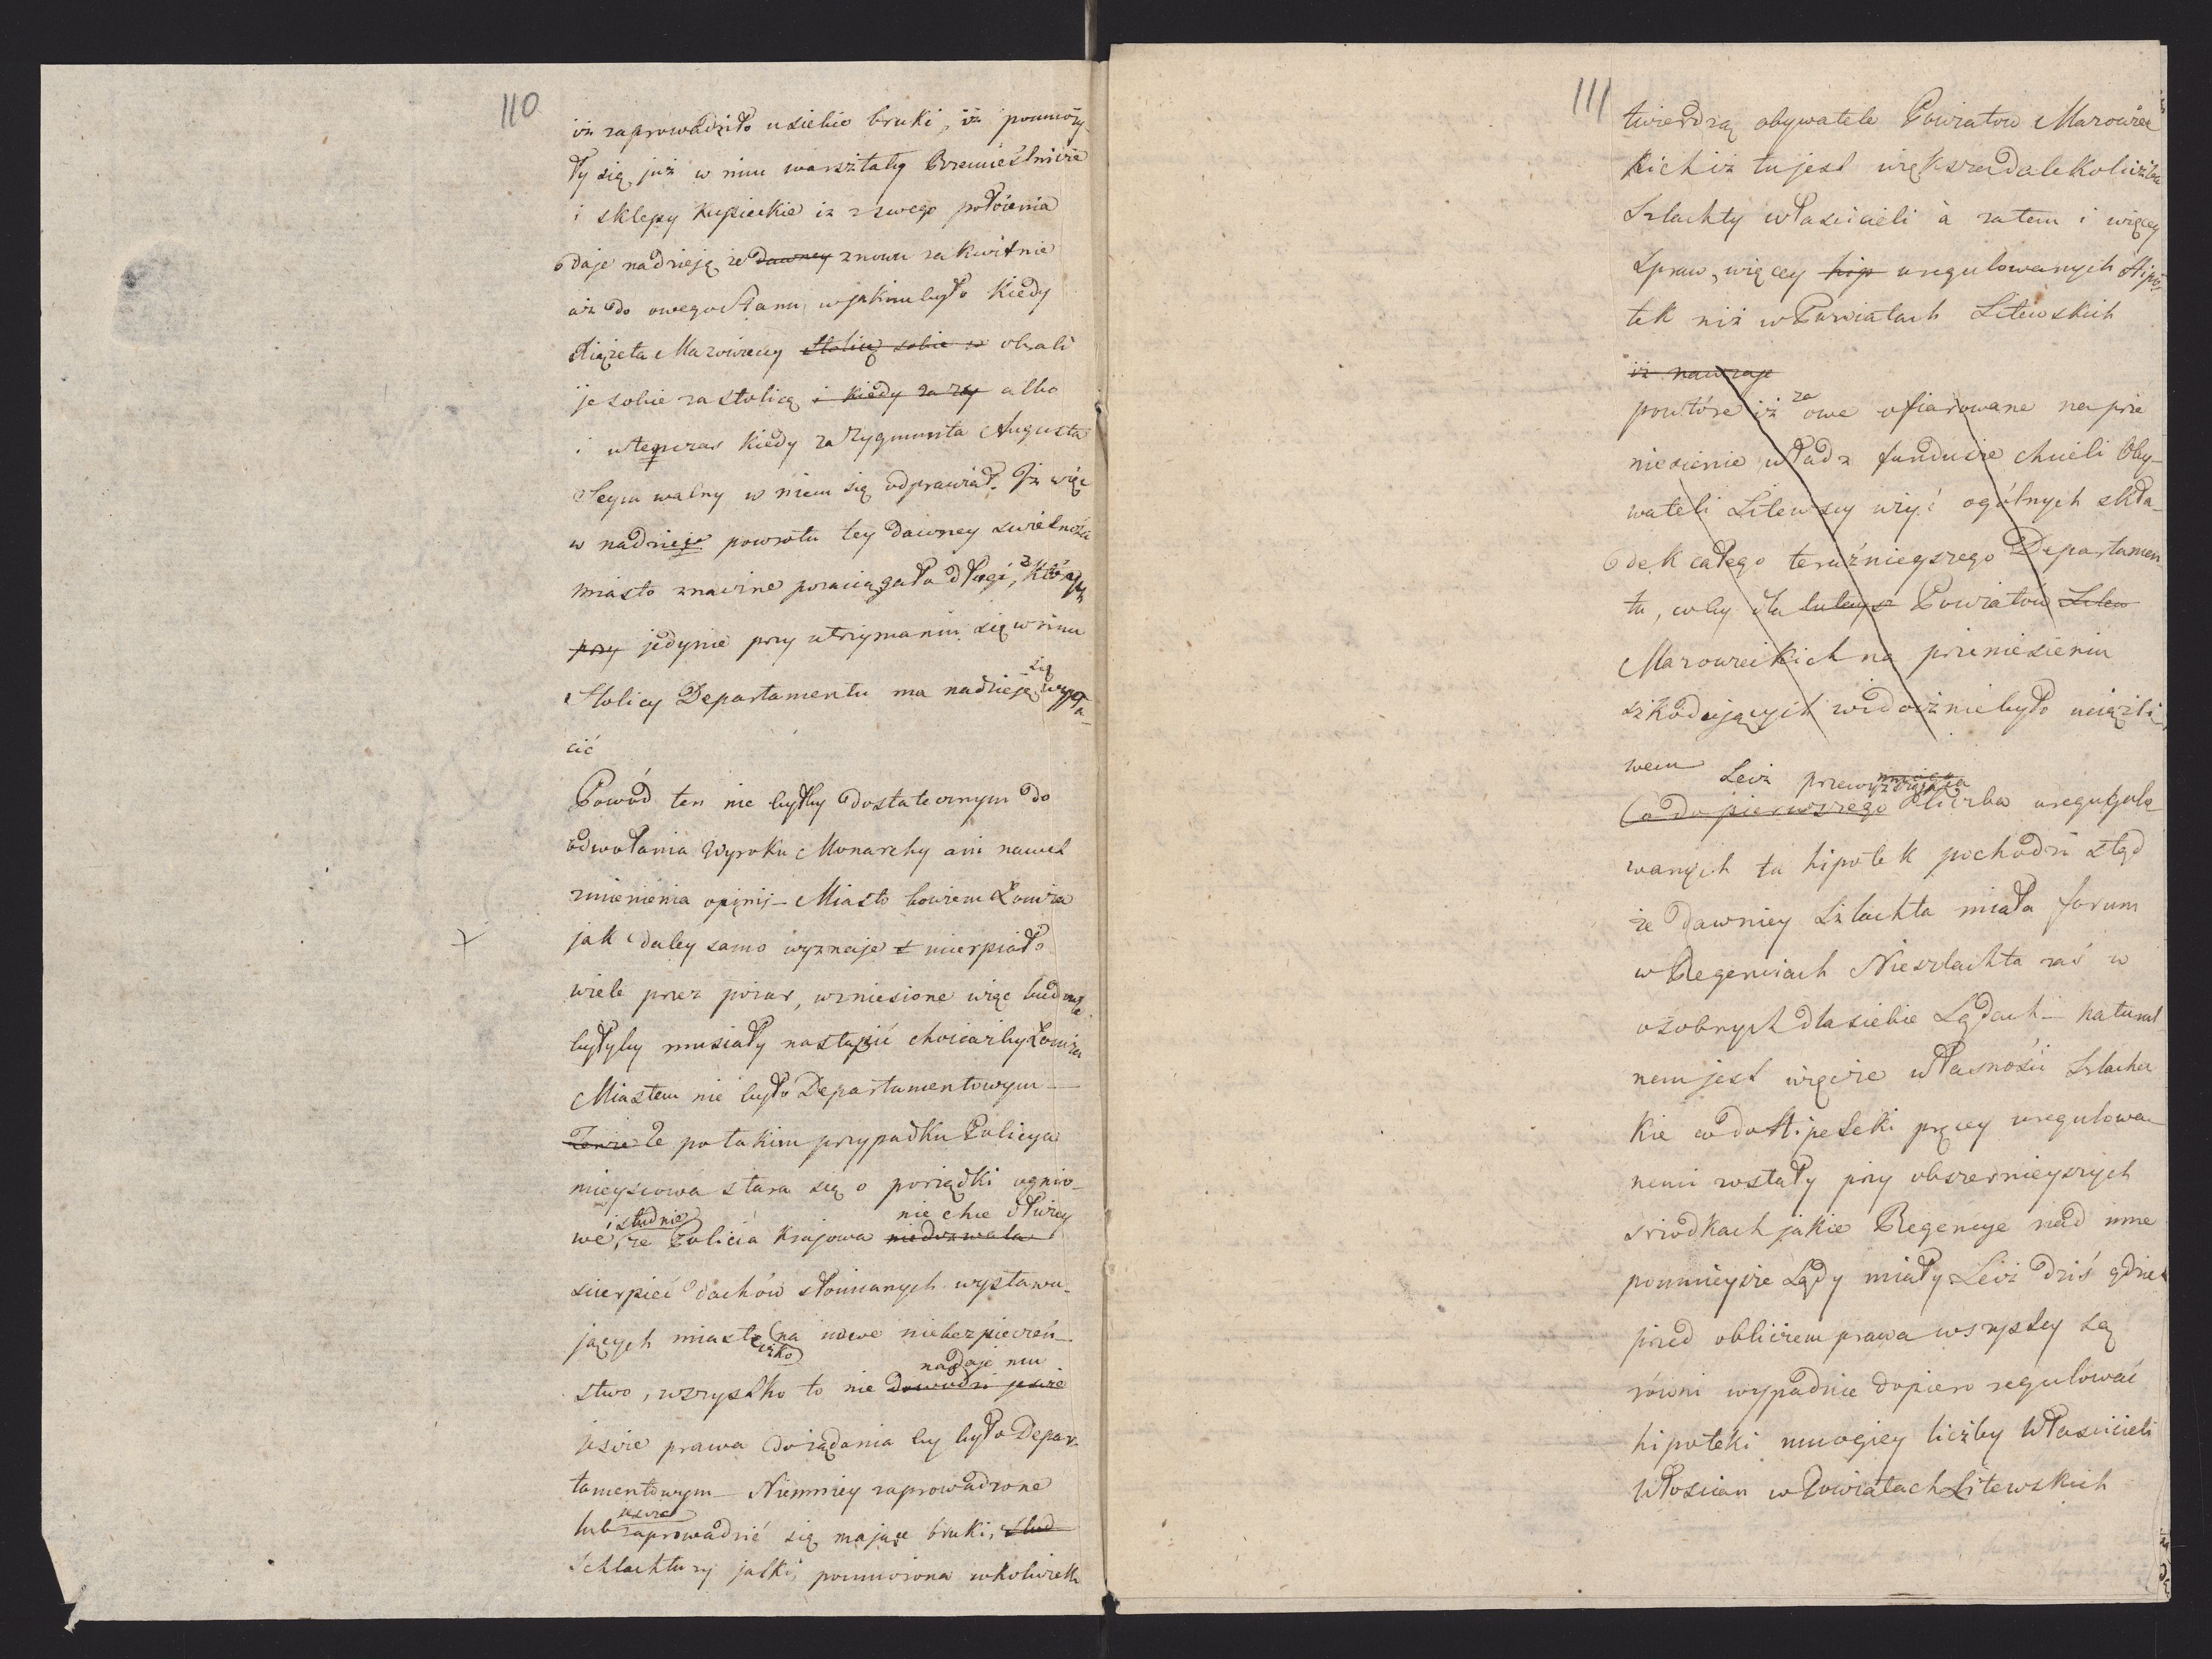 110
iż zaprowadziło u siebie bruki, iż pomnoży-
ły się już w nim warsztaty Rzemieślnicze
i sklepy kupieckie iż z swego położenia
daje nadzieję że dawney znowu zakwitnie
aż do owego Stanu w jakim było kiedy
Xiążęta Mazowieccy stolicę sobie w obrali
je sobie za stolicę i kiedy za zy albo
i wtenczas kiedy za Zygmunta Augusta
Seym walny w niem się odprawiał. Iż więc
w nadzieje powrotu tey dawney swietności
miasto znaczne pozaciągało długi, z których
przy jedynie przy utrzymaniu się w nim
Stolicy Departamentu ma nadzieję się wypła-
cić
Powód ten nie byłby dostatecznym do
odwołania Wyroku Monarchy ani nawet
zmienienia opinij – Miasto bowiem Łomża
jak daley samo wyznaje t ucierpiało
wiele przez pożar, wzniesione więc budowle
byłyby musiały nastąpić chociażby Łomża
Miastem nie było Departamentowym –
Zenże Że po takim przypadku Policya
mieyscowa stara się o porządki ognio-
i studnie nie chce dłużey
we, że Policia Krajowa niedozwala
cierpieć dachów słomianych wystawu-
jących miasto na nowe niebezpieczeń-
stwo, wszystko to nie dowodzi jeszcze
nadaje mu
jeszcze prawa do żądania by było Depar-
tamentowym – Niemniey zaprowadzone
jeszcze
lub zaprowadzić się mające bruki, stud
Schlachtuzy jatki, pomnożona w kolwiek
111
twierdzą obywatele Powiatow Mazowiec
kich iż tu jest większa daleko liczba
Szlachty właścicieli à zatem i więcey
Spraw, więcey hip uregulowanych Hipo-
tek niż w Powiatach Litewskich
iż nawzaje
powtóre iż za owe ofiarowane na prze
niesienie władz fundusze chcieli Oby-
wateli Litewscy użyć ogólnych skła-
dek całego teraźnieyszego Departamen-
tu, coby dla tuteysz Powiatów Litew
Mazowieckich na przeniesieniu
szkodujących widocznie było uciążli-
wem
Lecz przewyższająca
Co do pierwszego liczba uregulo
wanych tu hipotek pochodzi ztąd
że dawniey Szlachta miała forum
w Regenciach Nieszlachta zaś w
osobnych dla siebie Sądach – natural
nem jest więcże własności Szlachec
kie co do Hipoteki pręcey uregulowa-
nemi zostały przy obszernieyszych
srzodkach jakie Regencye nad inne
pomnieysze Sądy miały Lecz dziś gdzie
przed obliczem prawa wszyscy są
równi wypadnie dopiero regulować
hipoteki mnogiey liczby Właścicieli
Włoscian w Powiatach Litewskich